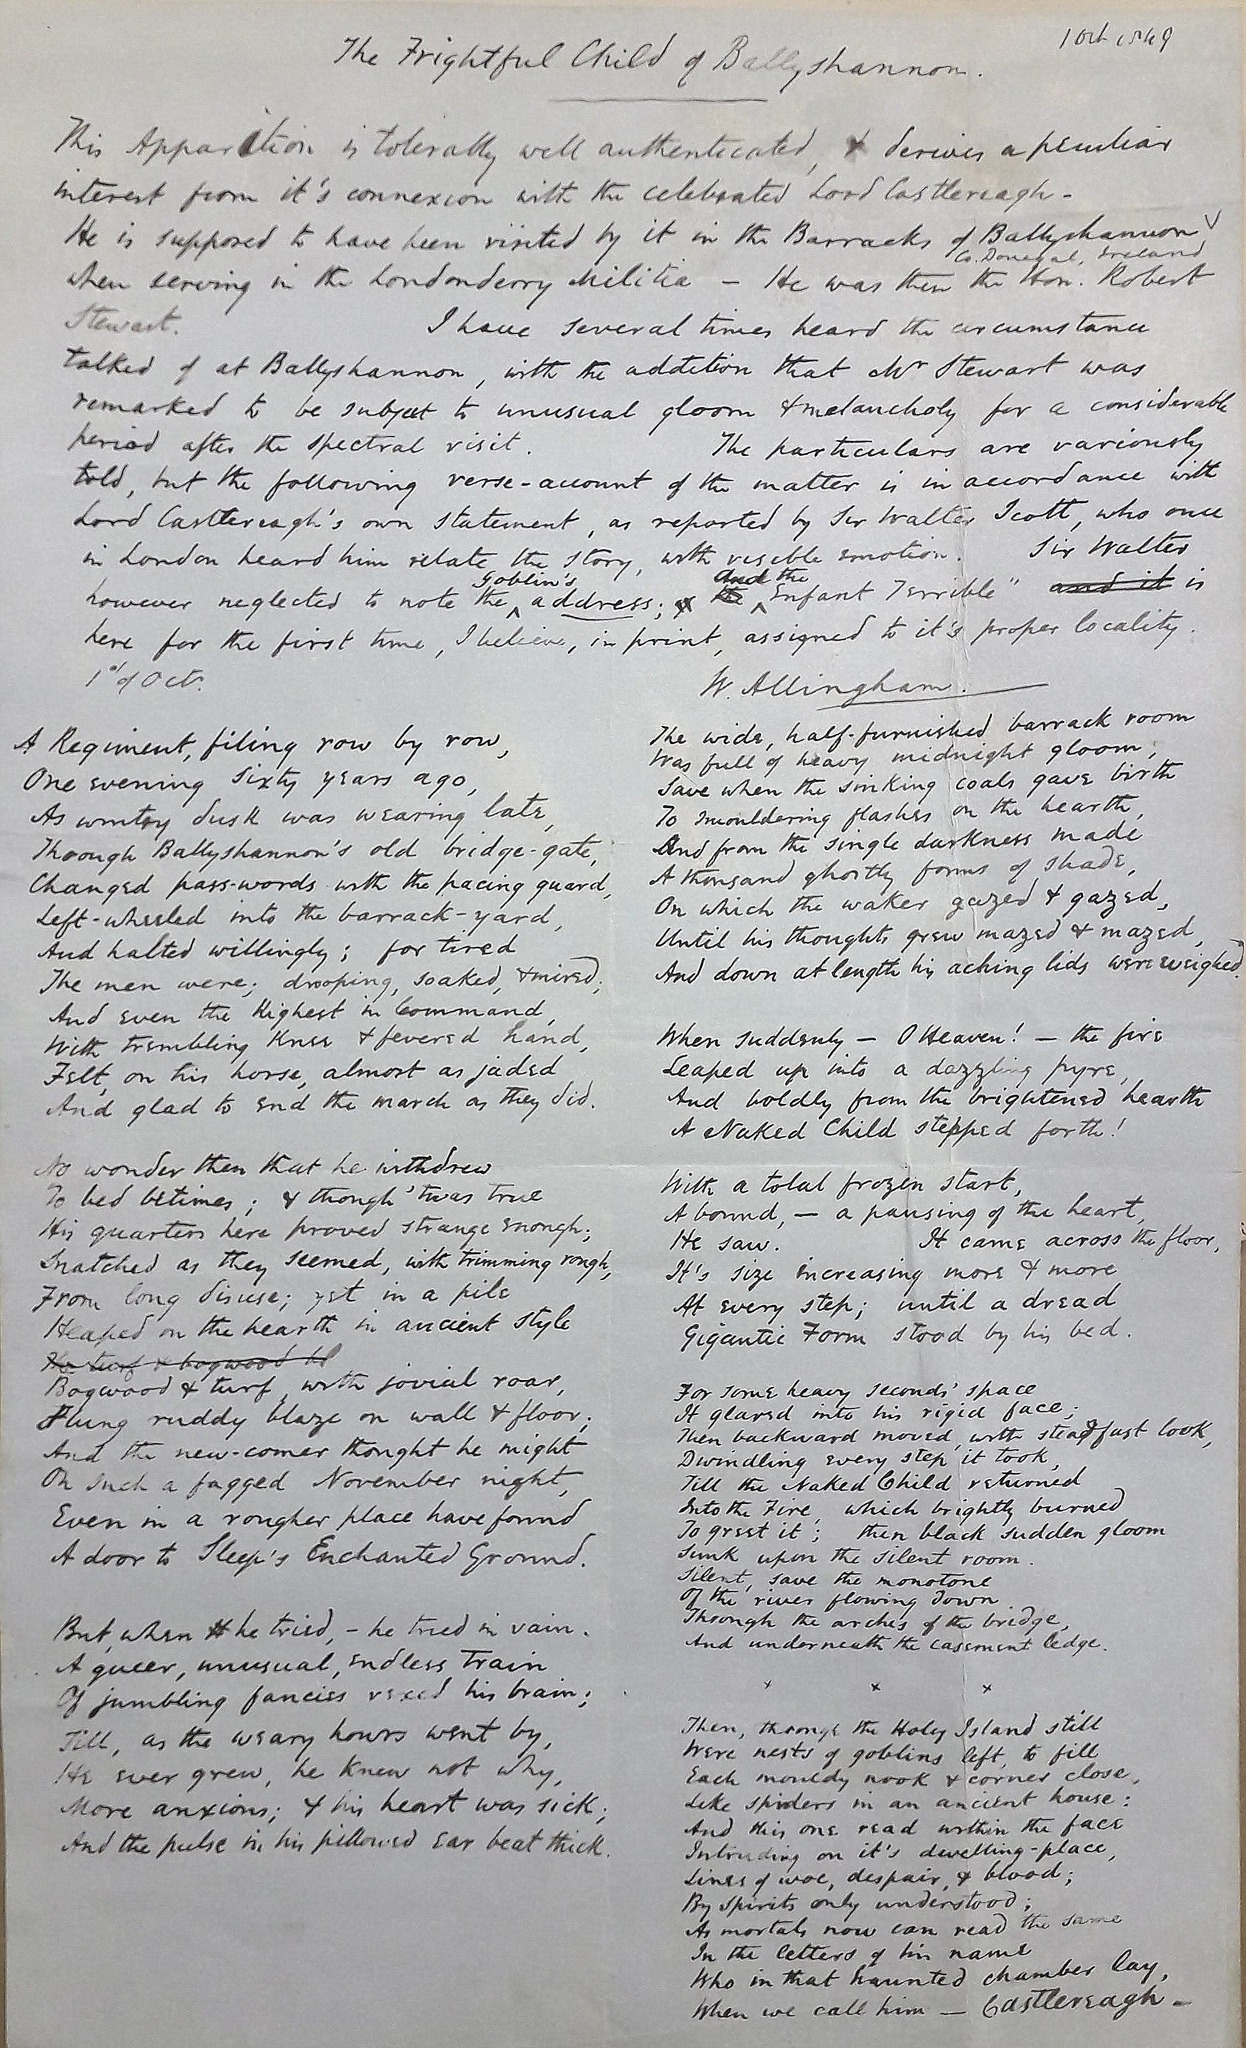 1 Oct 1849
The Frightful Child of Ballyshannon.
This Apparition is tolerably well authenticated, & derives a peculiar
interest from it's connexion with the celebrated Lord Castlereagh -
He is supposed to have been visited by it in the Barracks of Ballyshannon
Co. Donegal, Ireland
when serving in the Londonderry Militia - He was then the Hon. Robert
Stewart. I have several times heard the circumstance
talked of at Ballyshannon, with the addition that Mr Stewart was
remarked to be subject to unusual gloom & melancholy for a considerable
period after the spectral visit. The particulars are variously
told, but the following verse-account of the matter is in accordance with
Lord Castlereagh's own statement, as reported by Sir Walter Scott, who once
in London heard him relate the story, with visible emotion. Sir Walter
however neglected to note the Goblin's address; And the "Enfant Terrible" and it is
here for the first time, I believe, in print, assigned to it's proper locality.
1st of Oct. W. Allingham.
A Regiment, filing row by row,
One evening sixty years ago,
As wintry dusk was wearing late,
Through Ballyshannon's old bridge-gate,
Changed pass-words with the pacing guard,
Left-wheeled into the barrack-yard,
And halted willingly; for tired
The men were; drooping, soaked, & mired;
And even the Highest in Command,
With trembling knee & fevered hand,
Felt, on his horse, almost as jaded
And glad to end the march as they did.
No wonder then that he withdrew
To bed betimes; & though 'twas true
His quarters here proved strange enough;
Snatched as they seemed, with trimming rough,
From long disuse; yet in a pile
Heaped on the hearth in ancient style
The turf & bogwood
Bogwood & turf, with jovial roar,
Flung ruddy blaze on wall & floor;
And the new-comer thought he might
On such a fagged November night,
Even in a rougher place have found
A door to Sleep's Enchanted Ground.
But, when he tried, - he tried in vain.
A queer, unusual, endless train
Of jumbling fancies vexed his brain;
Till, as the weary hours went by,
He ever grew, he knew not why,
More anxious; & his heart was sick;
And the pulse in his pillowed ear beat thick.
The wide, half-furnished barrack room
Was full of heavy midnight gloom,
Save when the sinking coals gave birth
To smouldering flashes on the hearth,
And from the single darkness made
A thousand ghostly forms of shade,
On which the waker gazed & gazed,
Until his thoughts grew mazed & mazed,
And down at length his aching lids were weighed.
When suddenly - O Heaven! - the fire
Leaped up into a dazzling pyre,
And boldly from the brightened hearth
A Naked Child stepped forth!
With a total frozen start,
A bound, - a pausing of the heart,
He saw. It came across the floor,
It's size increasing more & more
At every step; until a dread
Gigantic Form stood by his bed.
For some heavy seconds' space
It glared into his rigid face;
Then backward moved, with steadfast look,
Dwindling every step it took,
Till the Naked Child returned
Into the Fire, which brightly burned
To greet it; then black sudden gloom
Sunk upon the silent room.
Silent, save the monotone
Of the river flowing down
Through the arches of the bridge,
And underneath the casement ledge.
x x x
Then, through the Holy Island still
Were nests of goblins left, to fill
Each mouldy nook & corner close,
Like spiders in an ancient house:
And this one read within the face
Intruding on it's dwelling-place,
Lines of woe, despair, & blood;
By spirits only understood;
As mortals now can read the same
In the letters of his name
Who in that haunted chamber lay,
When we call him - Castlereagh -